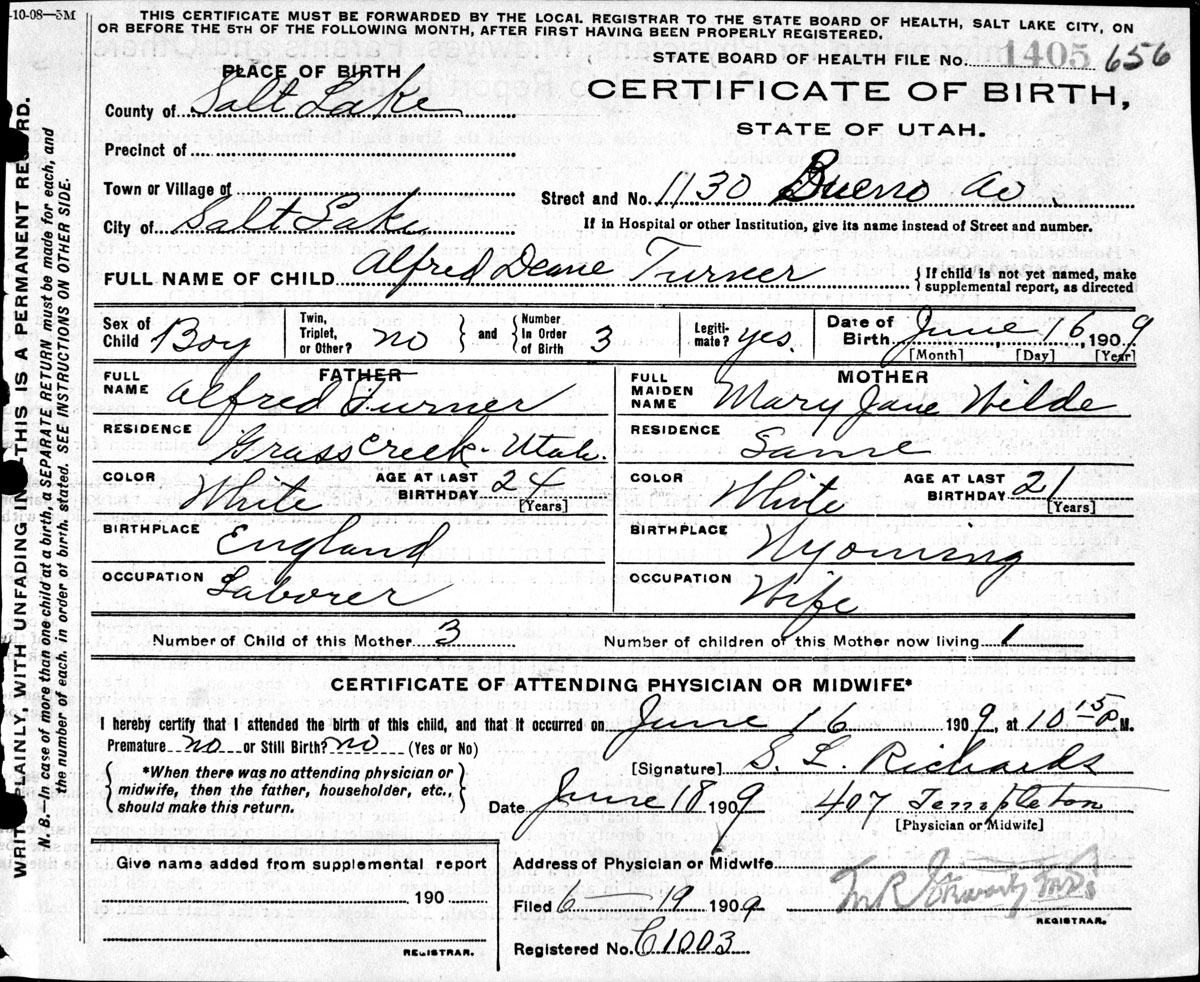 -10-08—5M
THIS CERTIFICATE MUST BE FORWARDED BY THE LOCAL REGISTRAR TO THE STATE BOARD OF HEALTH, SALT LAKE CITY, ON
OR BEFORE THE 5TH OF THE FOLLOWING MONTH, AFTER FIRST HAVING BEEN PROPERLY REGISTERED.
STATE BOARD OF HEALTH FILE No. 1405 656
PLACE OF BIRTH
CERTIFICATE OF BIRTH,
STATE OF UTAH.
County of Salt Lake
Precinct of
Town or Village of
Street and No. 1130 Buerno Av.
City of Salt Lake
If in Hospital or other Institution, give its name instead of Street and number.
FULL NAME OF CHILD Alfred Deane Turner
{If child is not yet named, make
supplemental report, as directed
Sex of Child Boy
Twin, Triplet, or Other? no } and { Number In Order of Birth 3
Legitimate? yes.
Date of Birth June 16, 1909
[Month] [Day] [Year]
FATHER
FULL NAME Alfred Turner
MOTHER
FULL MAIDEN NAME Mary Jane Wilde
RESIDENCE Grass Creek - Utah.
RESIDENCE Same
COLOR White AGE AT LAST BIRTHDAY 24 [Years]
COLOR White AGE AT LAST BIRTHDAY 21 [Years]
BIRTHPLACE England
BIRTHPLACE Wyoming
OCCUPATION Laborer
OCCUPATION Wife
Number of Child of this Mother 3
Number of children of this Mother now living 1
CERTIFICATE OF ATTENDING PHYSICIAN OR MIDWIFE*
I hereby certify that I attended the birth of this child, and that it occurred on June 16 1909, at 10 15 P. M.
Premature no or Still Birth? no (Yes or No)
*When there was no attending physician or
midwife, then the father, householder, etc.,
should make this return.
[Signature] S. L. Richards
Date June 18 1909 407 Templeton
[Physician or Midwife]
Give name added from supplemental report
190
REGISTRAR.
Address of Physician or Midwife
Filed 6 - 19 1909
REGISTRAR.
Registered No. C1003
WRITE PLAINLY, WITH UNFADING INK—THIS IS A PERMANENT RECORD.
N. B.—In case of more than one child at a birth, a SEPARATE RETURN must be made for each, and
the number of each, in order of birth, stated. SEE INSTRUCTIONS ON OTHER SIDE.